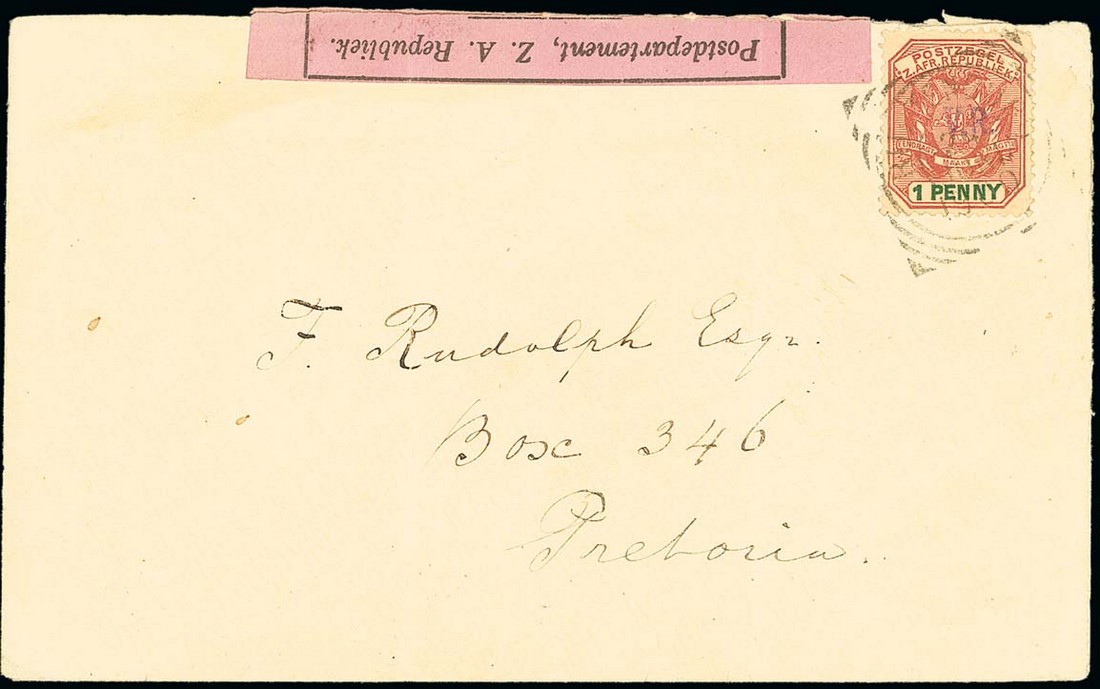 Postdepartement, Z. A. Republiek.
POSTZEGEL
Z. AFR. REPUBLIEK
EENDRAGT MAAKT MAGT
1 PENNY
F. Rudolph Esqr.
Box 346
Pretoria.